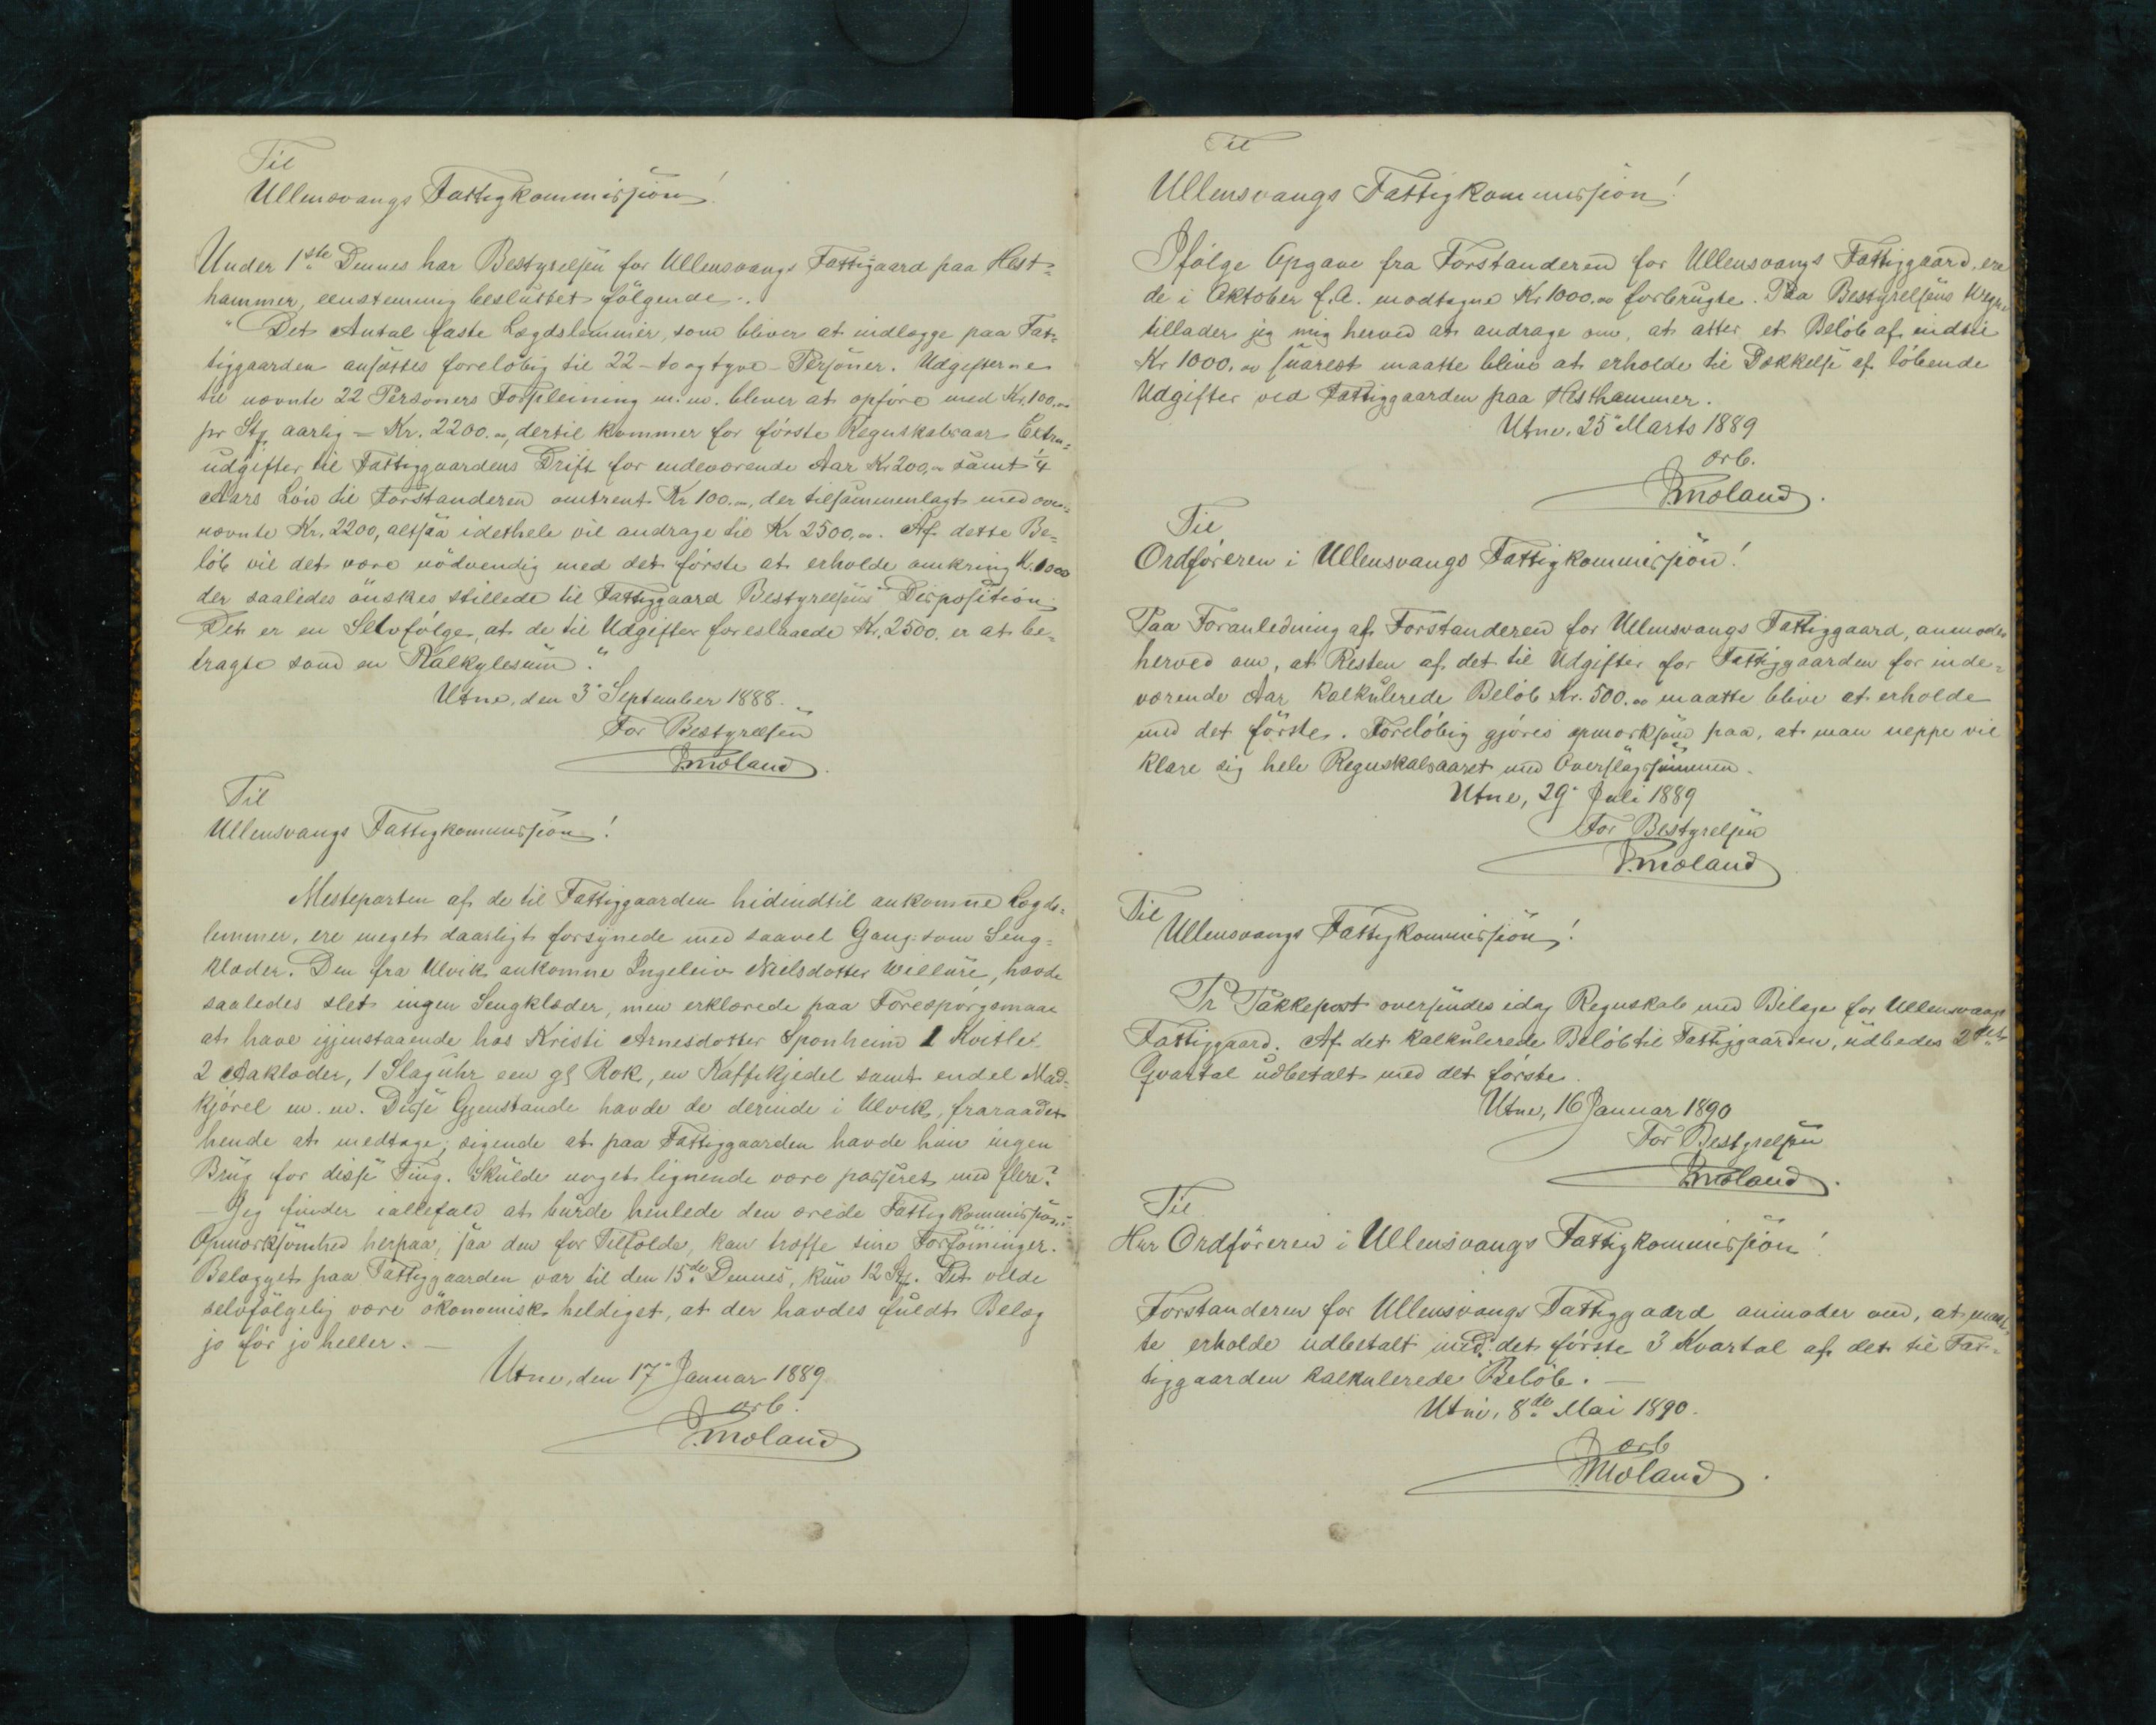 Til
Ullensvangs Fattigkommission!
Under 1ste Dennes har Bestyrelsen for Ullensvangs Fattiggaard paa Hest-
hammer, eenstemmig besluttet følgende:
"Det Antal faste Lægdslemmer, som bliver at indlægge paa Fat-
tiggaarden ansættes foreløbig til 22 - to og tyve - Personer. Udgifterne
til nævnte 22 Personers Forpleining m.m. bliver at opføre med Kr. 100.00
pr Stz aarlig = Kr. 2200.00, dertil kommer for første Regnskabsaar Extra-
udgifter til Fattiggaardens Drift for indeværende Aar Kr 200,00 samt 1/4
Aars Løn til Forstanderen omtrent Kr 100.00, der tilsammenlagt med oven-
nævnte Kr. 2200, altsaa idethele vil andrage til Kr 2500,00. Af dette Be-
løb vil det være nødvendig med det første at erholde omkring Kr. 1000
der saaledes ønskes stillede til Fattiggaard Bestyrelsens Disposition.
Det er en Selvfølge, at de til Udgifter foreslaaede Kr. 2500. er at be-
tragte som en Kalkylesum."
Utne, den 3. September 1888.
For Bestyrelsen
Moland.
Til
Ullensvangs Fattigkommission!
Mesteparten af de til Fattiggaarden hidindtil ankomne Lægds-
lemmer, ere meget daarligt forsynede med saavel Gang- som Seng-
klæder. Den fra Ulvik ankomne Ingeleiv Nielsdotter Willure, havde
saaledes slet ingen Sengklæder, men erklærede paa Forespørgsmaal
at have igjenstaaende hos Kristi Arnesdotter Sponheim 1 Kvitlet
2 Aaklæder, 1 Slaguhr een gl Rok, en Kaffekjedel samt endel Mad-
kjørel m.m. Disse Gjenstande havde de derinde i Ulvik, fraraadet
hende at medtage, sigende at paa Fattiggaarden havde hun ingen
Brug for disse Ting. Skulde noget lignende være passeret med flere?
— Jeg finder ialfald at burde henlede den ærede Fattigkommissions
Opmærksomhed herpaa, saa den for Tilfælde, kan træffe sine Forføininger.
Belægget paa Fattiggaarden var til den 15de Dennes, kun 12 Stz. Det vilde
selvfølgelig være økonomisk heldigst, at der havdes fuldt Belæg
jo før jo heller. —
Utne, den 17. Januar 1889
ærb.
Moland
Til
Ullensvangs Fattigkommission!
Ifølge Opgave fra Forstanderen for Ullensvangs Fattiggaard, ere
de i Oktober f.A. modtagne Kr 1000.00 forbrugte. Paa Bestyrelsens Vegne
tillader jeg mig herved at andrage om, at atter et Beløb af indtil
Kr 1000.00 snarest maatte blive at erholde til Dækkelse af løbende
Udgifter ved Fattiggaarden paa Hesthammer.
Utne, 25 Marts 1889
ærb.
Moland.
Til
Ordføreren i Ullensvangs Fattigkommission!
Paa Foranledning af Forstanderen for Ullensvangs Fattiggaard, anmodes
herved om, at Resten af det til Udgifter for Fattiggaarden for inde-
værende Aar kalkulerede Beløb Kr. 500.00 maatte blive at erholde
med det første. Foreløbig gjøres opmærksom paa, at man neppe vil
klare sig hele Regnskabsaaret med Overslagssummen.
Utne, 29. Juli 1889
For Bestyrelsen
Moland
Til
Ullensvangs Fattigkommission!
Pr Pakkepost oversendes idag Regnskab med Bilage for Ullensvangs
Fattiggaard. Af det kalkulerede Beløb til Fattiggaarden, udbedes 2det
Qvartal udbetalt med det første.
Utne, 16 Januar 1890
For Bestyrelsen
Moland.
Til
Herr Ordføreren i Ullensvangs Fattigkommission!
Forstanderen for Ullensvangs Fattiggaard anmoder om, at maat-
te erholde udbetalt med det første 3 Kvartal af det til Fat-
tiggaarden kalkulerede Beløb. —
Utne, 8de Mai 1890.
ærb
Moland.